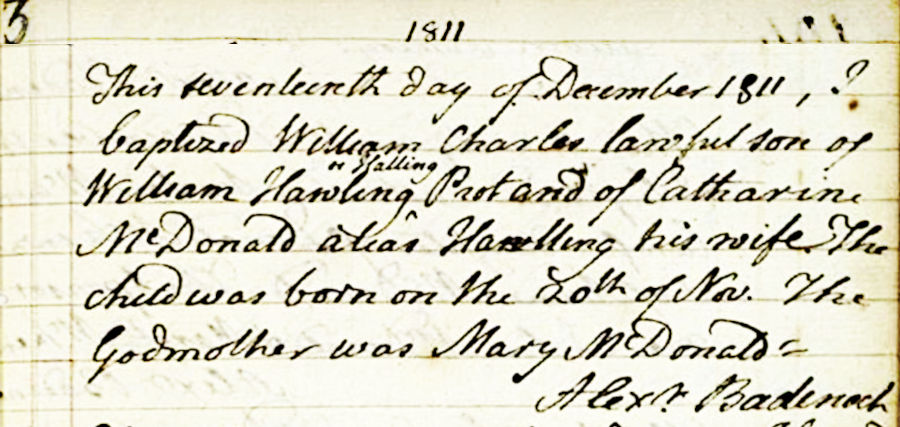 3
1811
This seventeenth day of December 1811, I
baptized William Charles lawful son of
or Halling
William Hawling Prot and of Catharine
McDonald alias Hawlling his wife. The
child was born on the 20th of Nov. The
Godmother was Mary McDonald =
Alexr. Badenoch